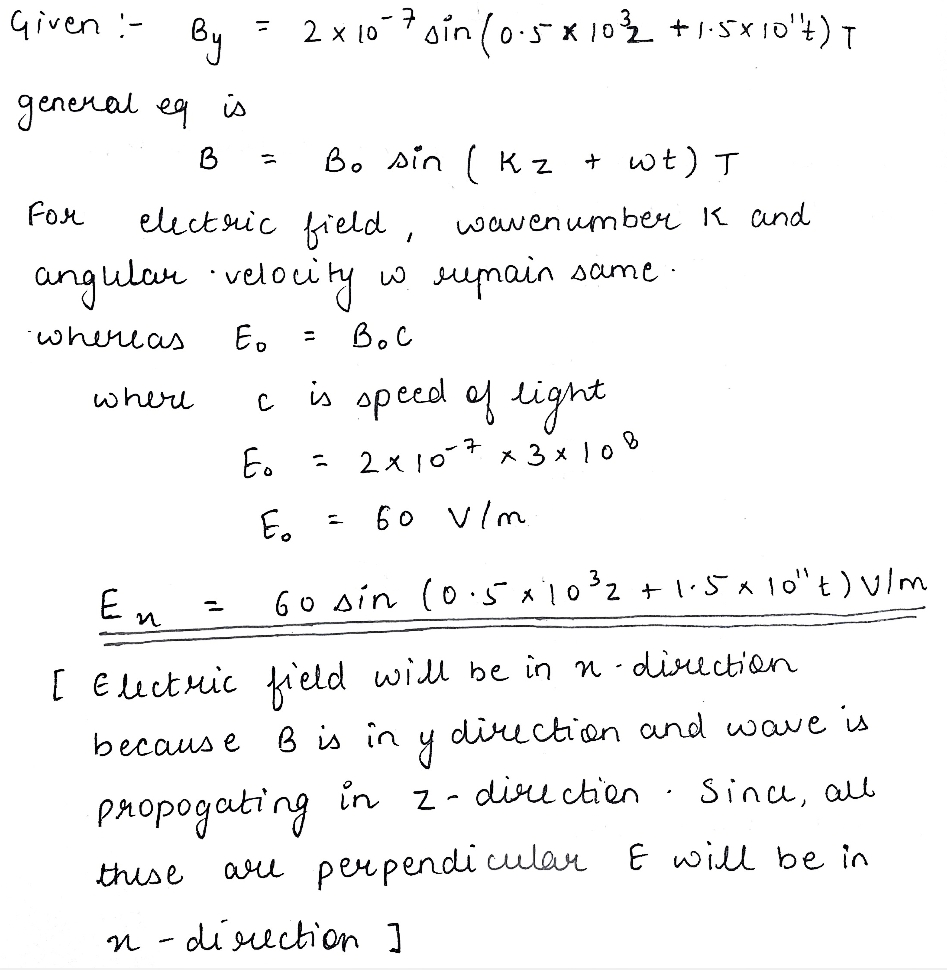 Given :- By = 2 x 10⁻⁷ sin (0.5 x 10³z + 1.5x10¹¹t) T
general eq is
B = B₀ sin ( Kz + wt) T
For electric field, wavenumber K and
angular velocity w remain same.
whereas E₀ = B₀C
where c is speed of light
E₀ = 2x10⁻⁷ x 3x10⁸
E₀ = 60 V/m
Ex = 60 sin (0.5 x 10³z + 1.5 x 10¹¹t) V/m
[ Electric field will be in x-direction
because B is in y direction and wave is
propogating in z-direction. Since, all
these are perpendicular E will be in
x-direction ]